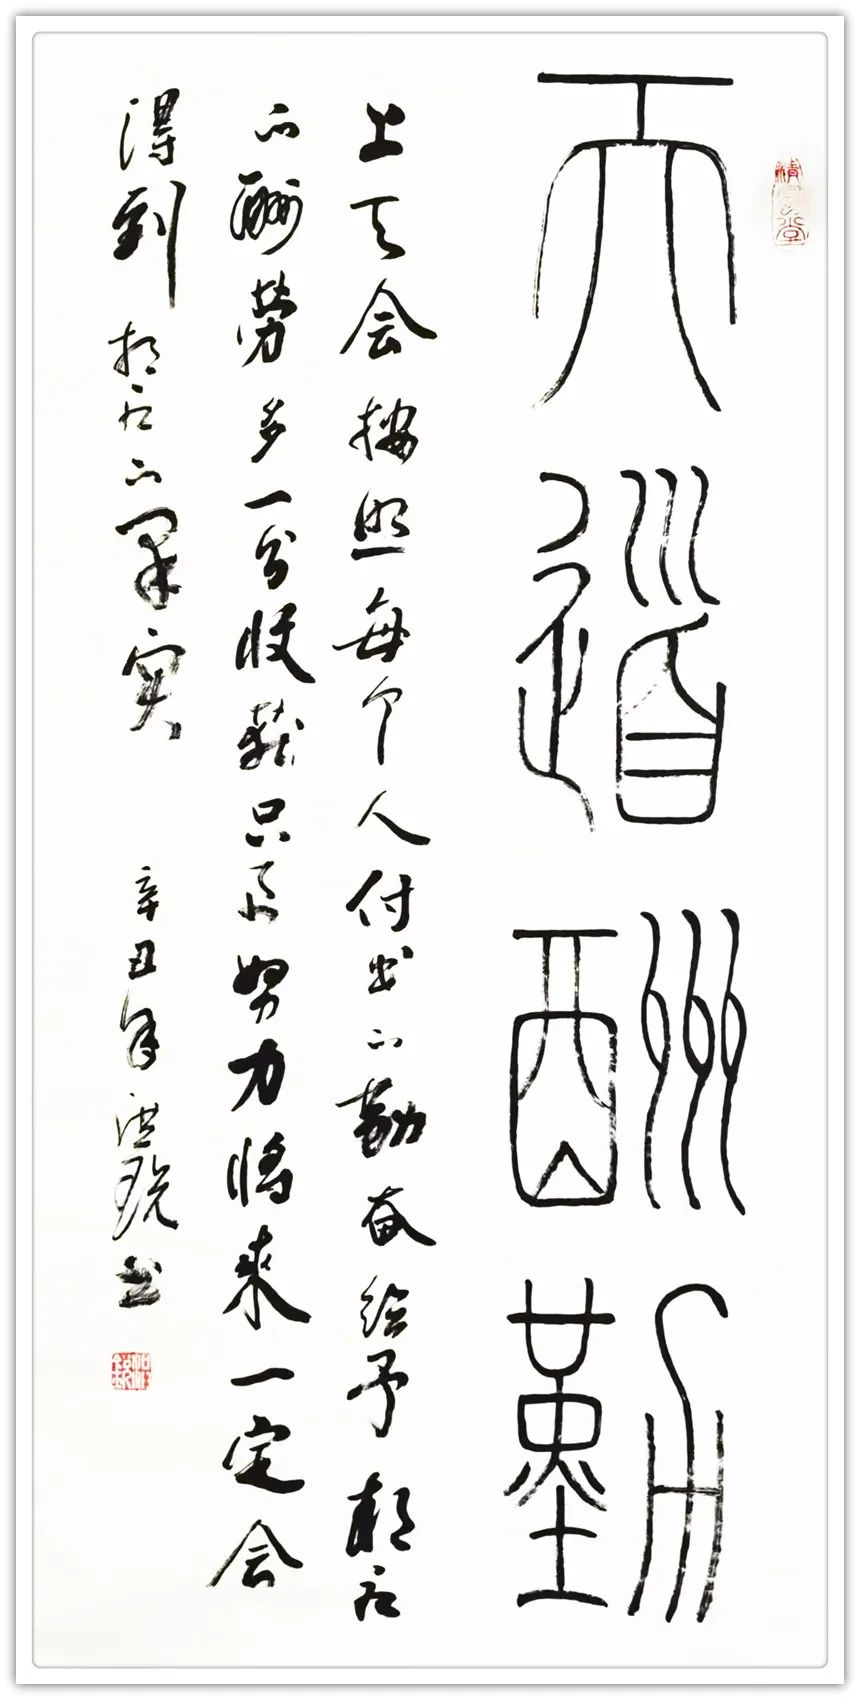 天道酬勤
上天会按照每个人付出的勤奋给予相应
的酬劳多一分收获只要努力将来一定会
得到相应的果实 辛丑年洪书